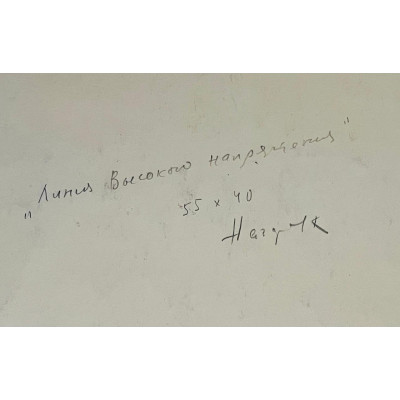 „Линия Высокого напряжения"
55 х 40